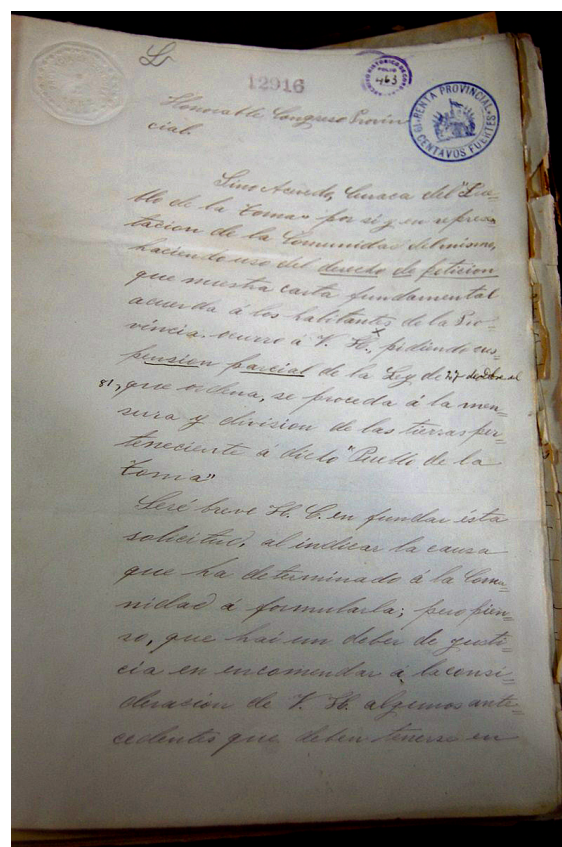 12916
FOLIO
463
RENTA PROVINCIAL
CENTAVOS FUERTES
Honorable Congreso Provin
cial.
Lino Acevedo, Curaca del "Pue=
blo de la Toma" por si y en represen
tacion de la Comunidad del mismo,
haciendo uso del derecho de peticion
que nuestra carta fundamental
acuerda á los habitantes de la Pro=
vincia. ocurro á V. H., pidiendo sus
pension parcial de la Ley de 27 de Dbre del
81, que ordena, se proceda á la men=
sura y division de las tierras per=
teneciente á dicho "Pueblo de la
Toma"
Seré breve H. C. en fundar ésta
solicitud, al indicar la causa
que ha determinado á la Comu=
nidad á formularla; pero pien=
so, que hai un deber de justi=
cia en encomendar á la consi=
deracion de V. H. algunos ante=
cedentes que deben tenerse en